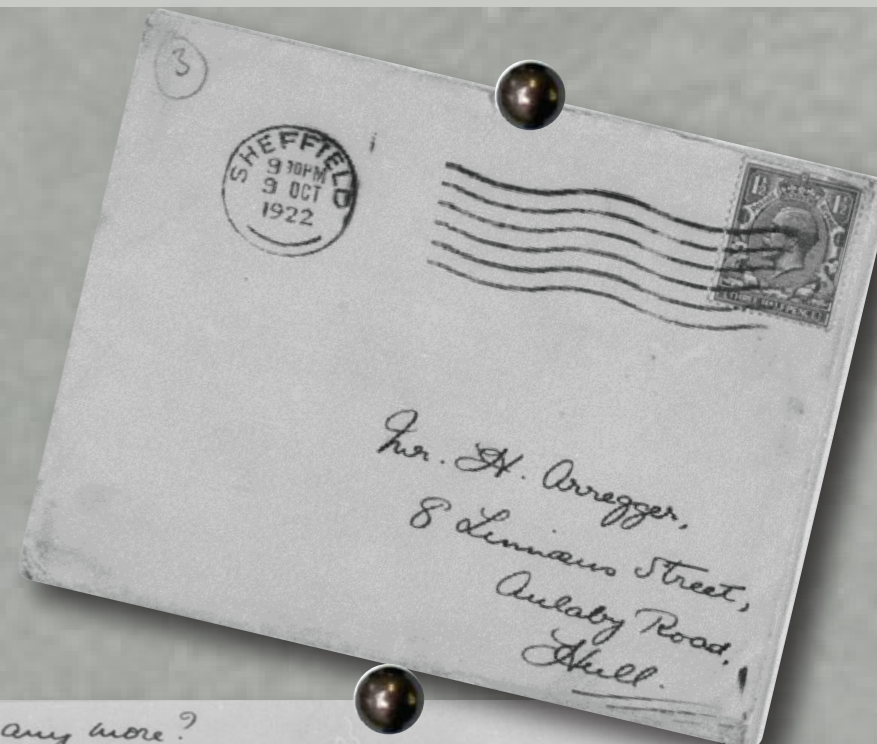 3
SHEFFIELD
9 30PM
9 OCT
1922
1½ 1½
Mr. H. Arregger,
8 Linnæus Street,
Anlaby Road,
Hull.
any more?